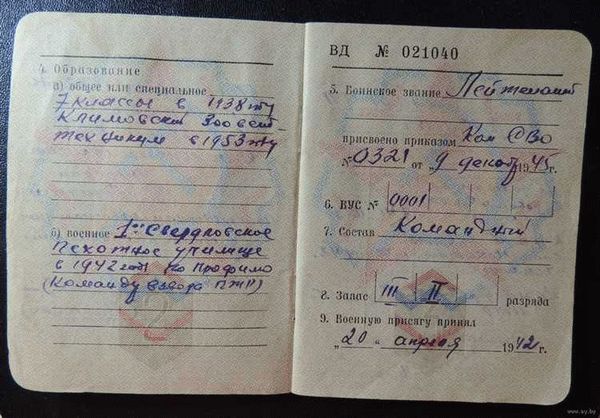 4. Образование
а) общее или специальное
7 классы в 1938 году
Климовский Зоовет
техникум в 1953 году
б) военное 1ое Свердловское
Пехотное училище
в 1942 году по Профилю
(Командир взвода ПТР)
ВД № 021040
5. Воинское звание Лейтенант
присвоено приказом Ком СВО
№ 0321 от "9 декабр 1945 г.
6. ВУС № 0001
7. Состав Командный
8. Запас III II разряда
9. Военную присягу принял
„20" апреля 1942 г.
www.ay.by